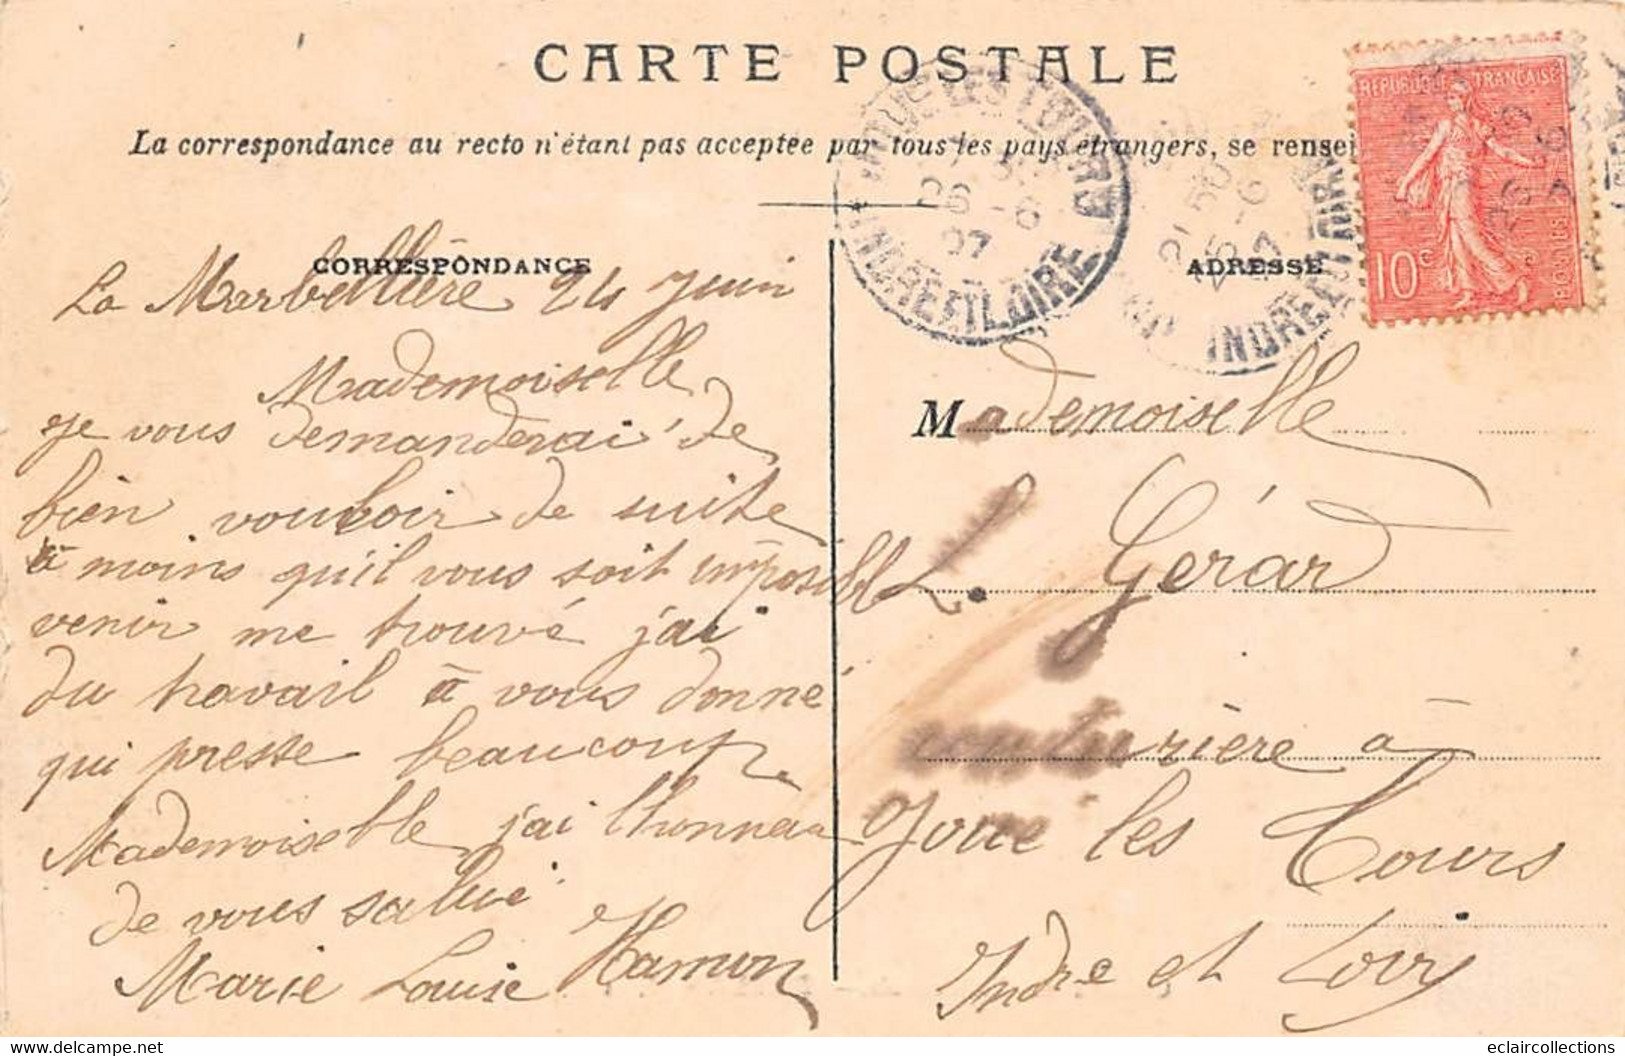 CARTE POSTALE
La correspondance au recto n'étant pas acceptée par tous les pays étrangers, se rensei
CORRESPONDANCE
La Marbellière 24 juin
Mademoiselle
je vous demanderai de
bien vouloir de suite
à moins qu'il vous soit impossible
venir me trouvé j'ai
du travail à vous donné
qui presse beaucoup
Mademoiselle j'ai l'honneu
de vous salué
Marie Louise Hamon
ADRESSE
Mademoiselle
L. Gérard
couturière à
Joué les Tours
Indre et Loire
REPUBLIQUE FRANÇAISE
10c
POSTES
JOUE LES TOURS
26 -6
07
INDRE ET LOIRE
INDRE ET LOIRE
eclaircollections
© delcampe.net